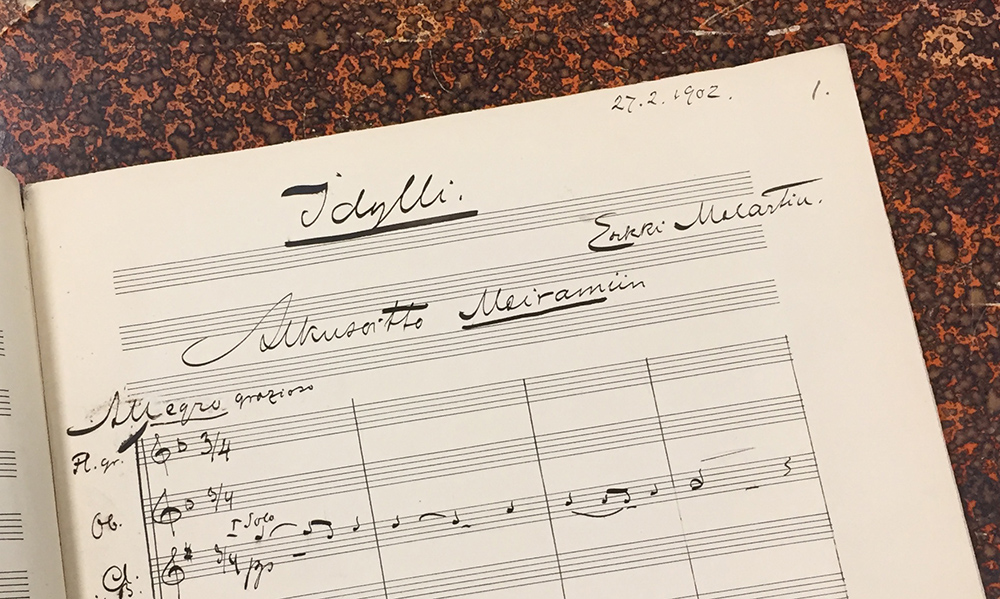 27.2.1902. 1.
Idylli.
Erkki Melartin.
Alkusoitto Meiramiin
Allegro grazioso
Fl. gr. 3/4
Ob. 3/4
I Solo
Cl. 3/4 pp